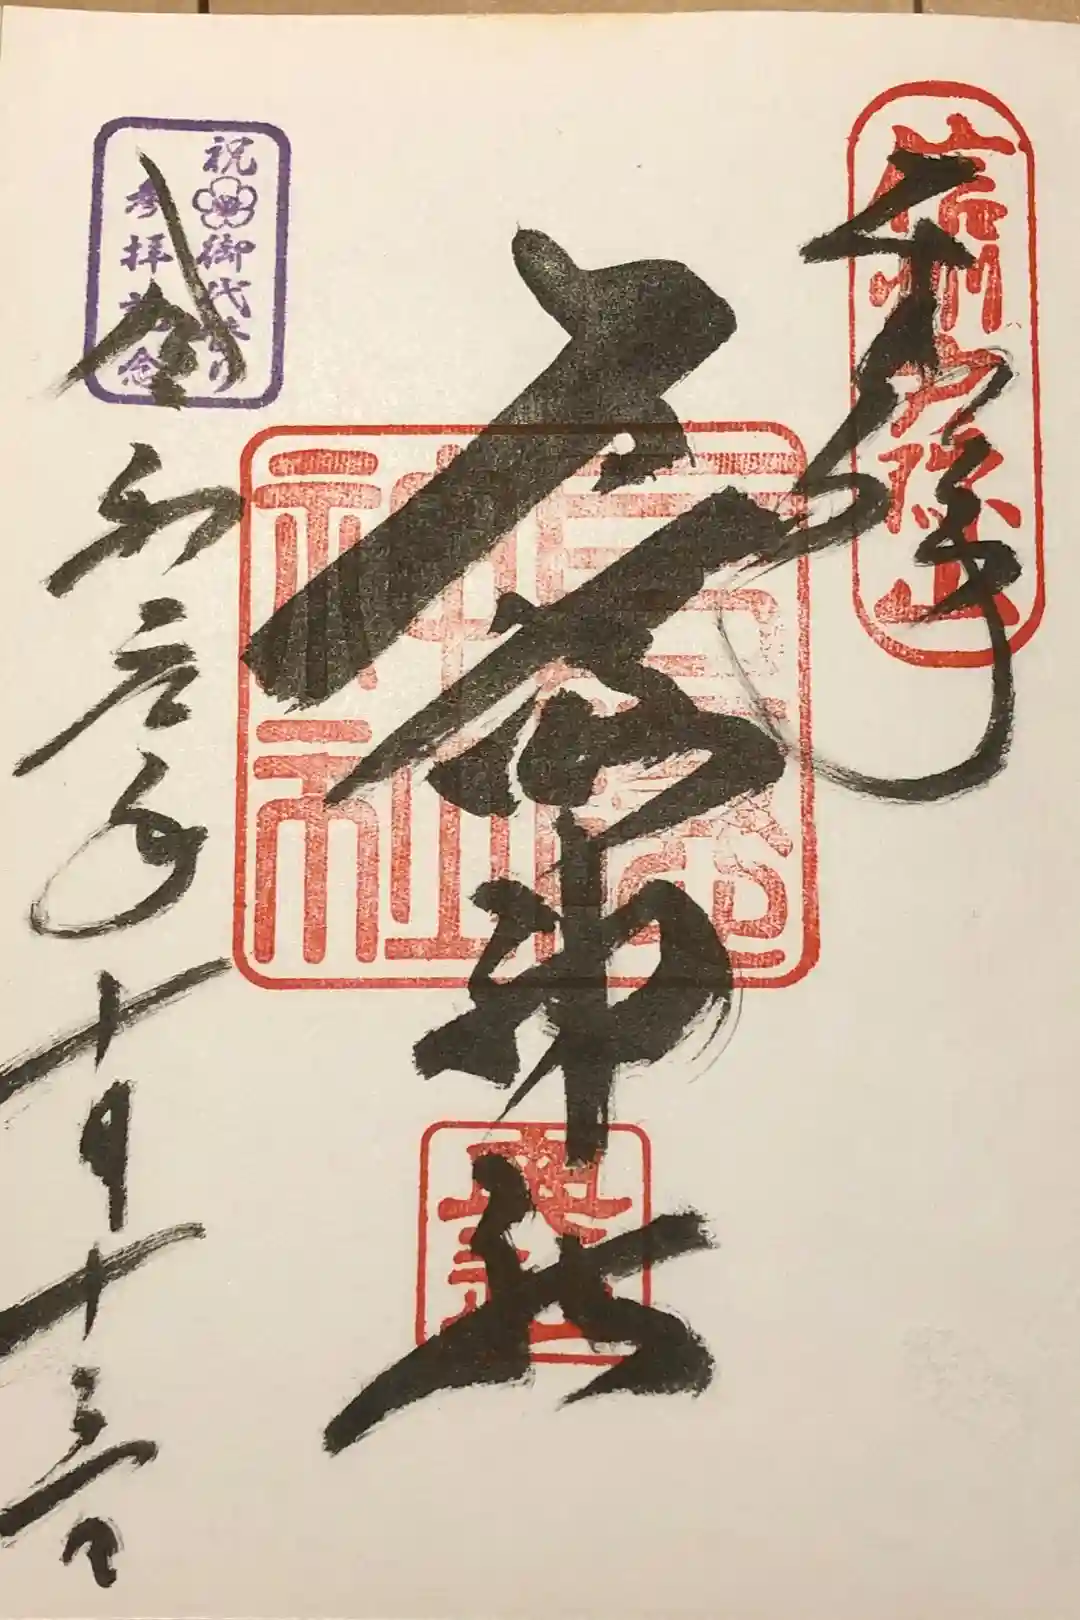 信州戸隠山
戸隠神社
戸隠
神社
祝 御代替り
参拝記念
令和元年十月十三日